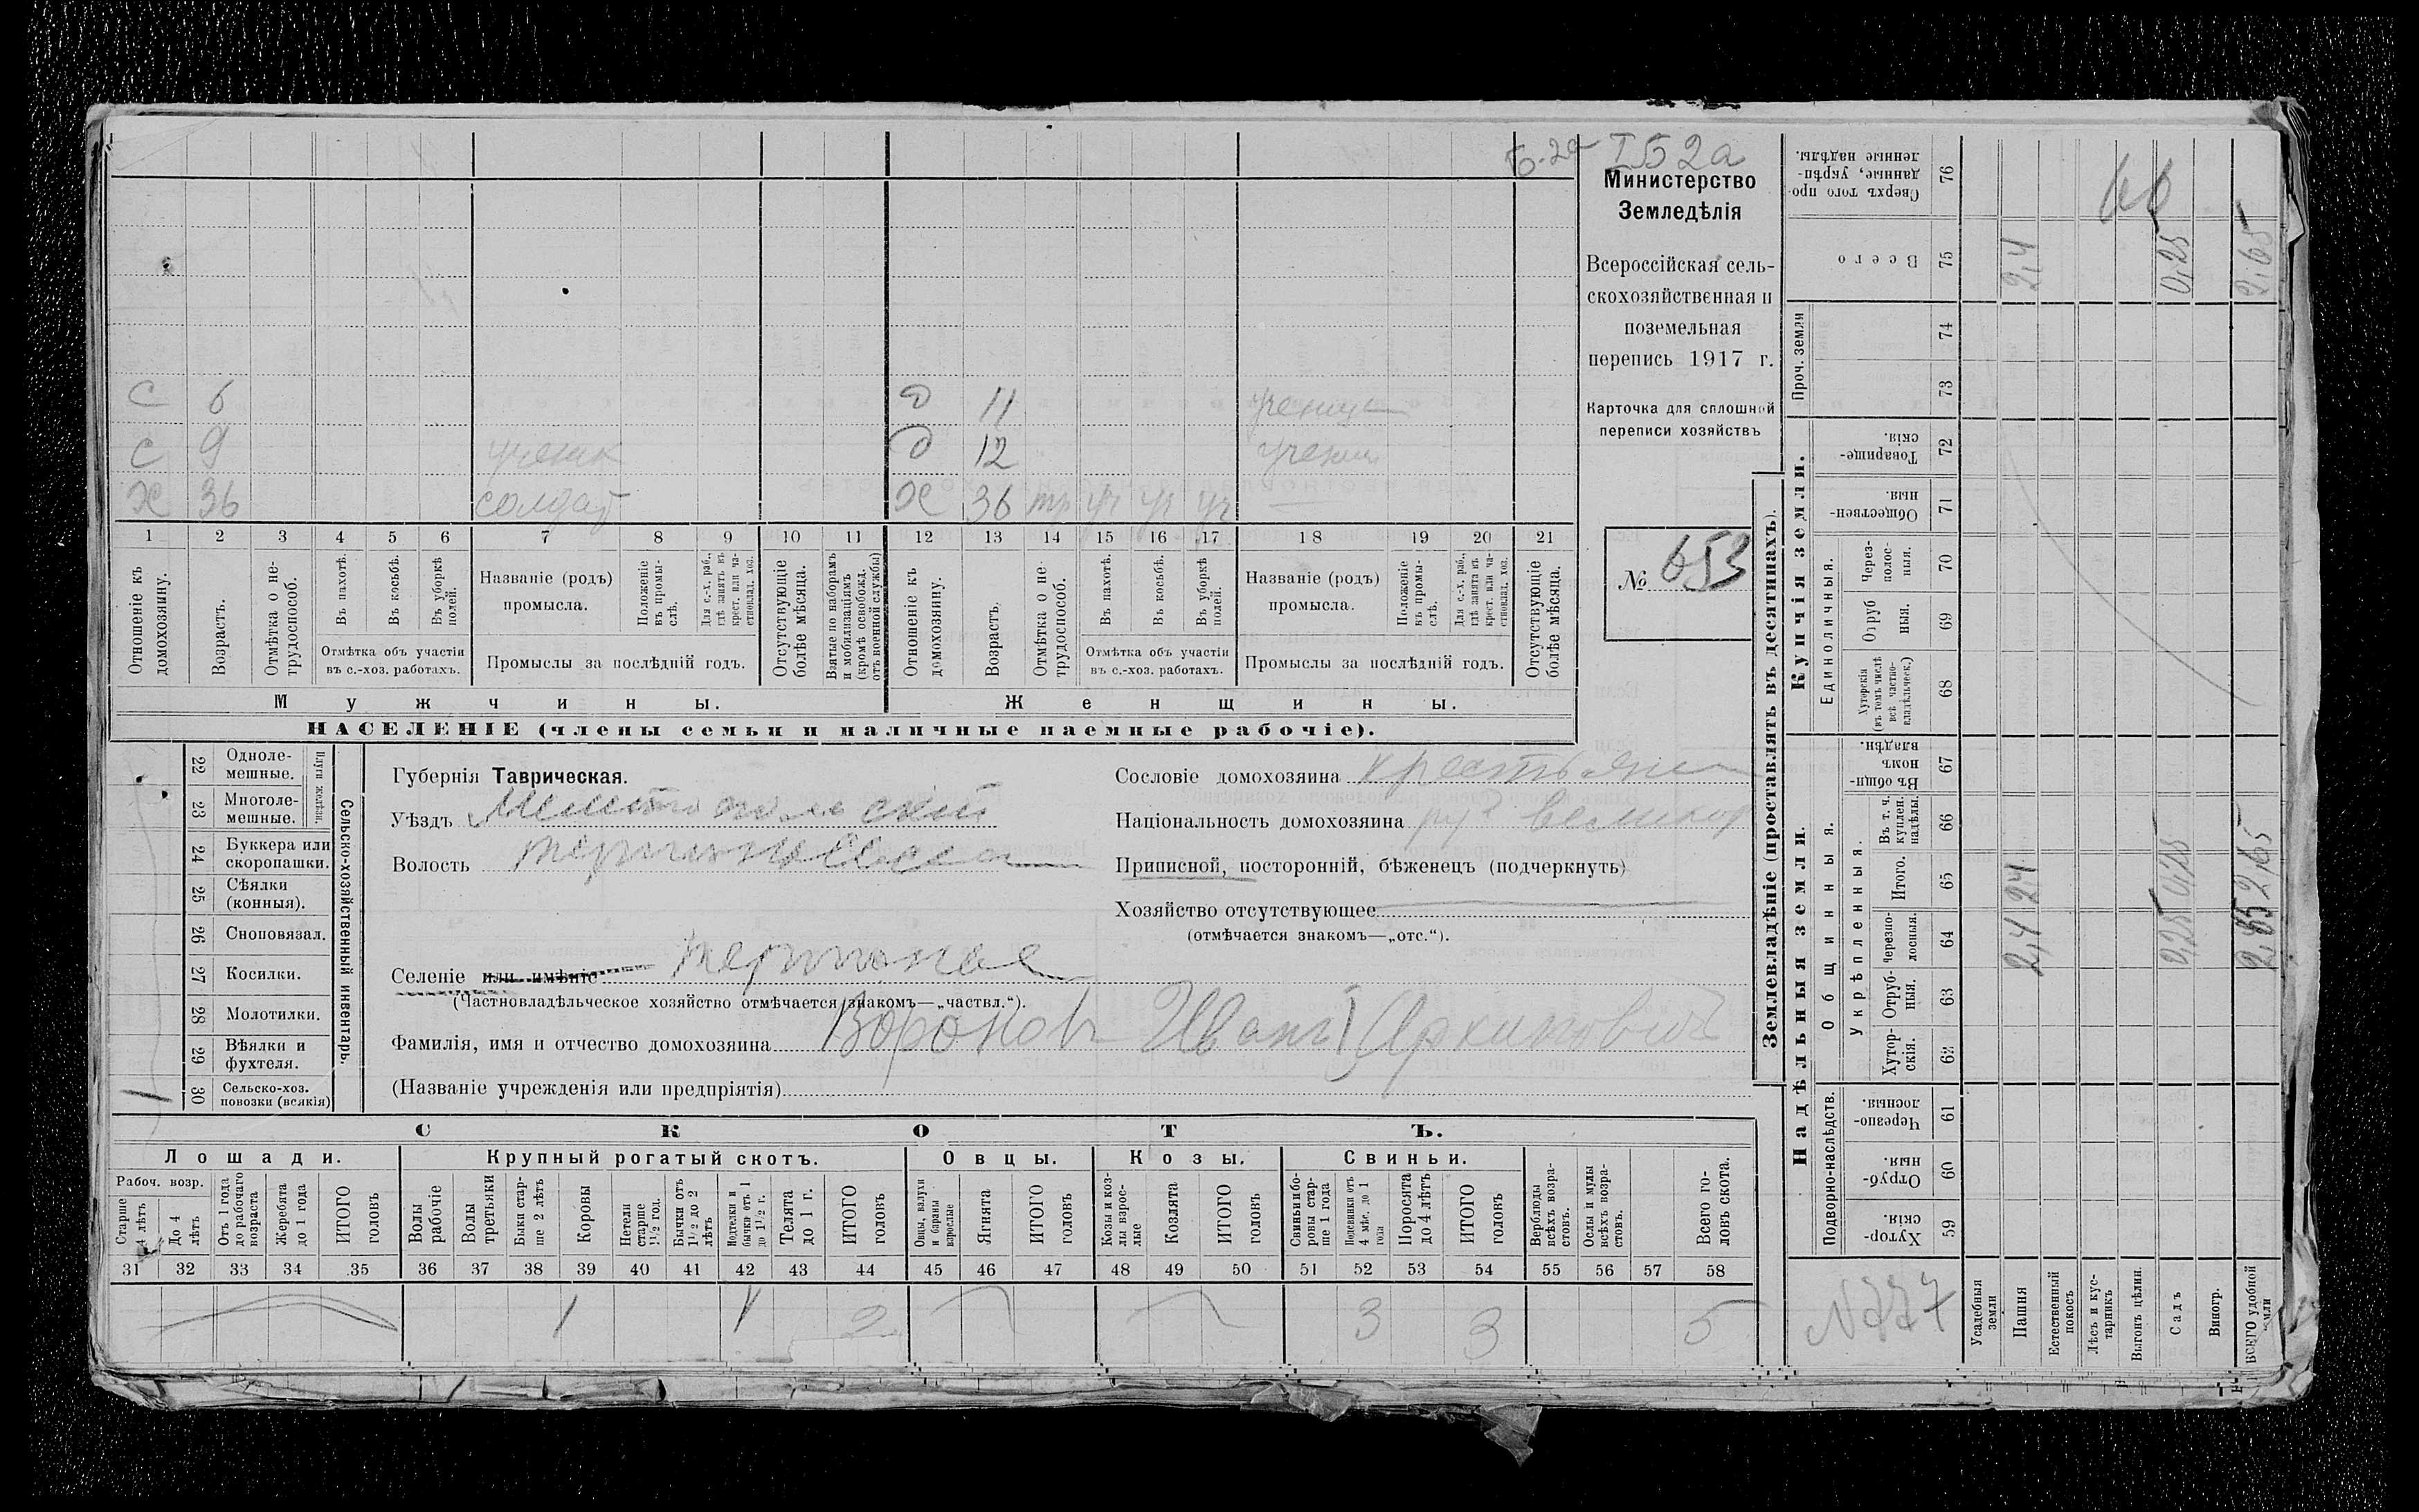 Б-2а I Б 2а
Министерство
Земледѣлія
Всероссійская сель-
скохозяйственная и
поземельная
перепись 1917 г.
Карточка для сплошной
переписи хозяйствъ
№ 653
С 6 Д 11 ученица
С 9 ученик Д 12 учениц
Х 36 солдат Х 36 тр уч уч уч —
1 2 3 4 5 6 7 8 9 10 11 12 13 14 15 16 17 18 19 20 21
Отношеніе къ домохозяину.
Возрастъ.
Отмѣтка о не-трудоспособ.
Въ пахотѣ.
Въ косьбѣ.
Въ уборкѣ полей.
Отмѣтка объ участіи
въ с.-хоз. работахъ.
Названіе (родъ)
промысла.
Положеніе въ промы-слѣ.
Для с.-х. раб., гдѣ занятъ въ крест. или ча-стновлад. хоз.
Промыслы за послѣдній годъ.
Отсутствующіе болѣе мѣсяца.
Взятые по наборамъ и мобилизаціямъ (кромѣ освобожд. отъ военной службы)
Отношеніе къ домохозяину.
Возрастъ.
Отмѣтка о не-трудоспособ.
Въ пахотѣ.
Въ косьбѣ.
Въ уборкѣ полей.
Отмѣтка объ участіи
въ с.-хоз. работахъ.
Названіе (родъ)
промысла.
Положеніе въ промы-слѣ.
Для с.-х. раб., гдѣ занята въ крест. или ча-стновлад. хоз.
Промыслы за послѣдній годъ.
Отсутствующіе болѣе мѣсяца.
Мужчины. Женщины.
НАСЕЛЕНІЕ (члены семьи и наличные наемные рабочіе).
Сельско-хозяйственный инвентарь.
Плуги желѣзн.
22 Одноле-мешные.
23 Многоле-мешные.
24 Буккера или скоропашки.
25 Сѣялки (конныя).
26 Сноповязал.
27 Косилки.
28 Молотилки.
29 Вѣялки и фухтеля.
30 Сельско-хоз. повозки (всякія) 1
Губернія Таврическая.
Уѣздъ Мелитопольский
Волость Терпеньевская
Селеніе или имѣніе Терпенье
(Частновладѣльческое хозяйство отмѣчается знакомъ—„частвл.“).
Фамилія, имя и отчество домохозяина Воронов Иванъ Архипович
(Названіе учрежденія или предпріятія)
Сословіе домохозяина крестьянин
Національность домохозяина рус великор
Приписной, посторонній, бѣженецъ (подчеркнуть)
Хозяйство отсутствующее
(отмѣчается знакомъ—„отс.“).
СКОТЪ.
Лошади. Крупный рогатый скотъ. Овцы. Козы. Свиньи.
Рабоч. возр.
Старше 4 лѣтъ
До 4 лѣтъ
Отъ 1 года до рабочаго возраста
Жеребята до 1 года
ИТОГО головъ
Волы рабочіе
Волы третьяки
Быки стар-ше 2 лѣтъ
Коровы
Нетели старше 1½ год.
Бычки отъ 1½ до 2 лѣтъ
Нетелки и бычки отъ 1 до 1½ г.
Телята до 1 г.
ИТОГО головъ
Овцы, валухи и бараны взрослые
Ягнята
ИТОГО головъ
Козы и коз-лы взрос-лые
Козлята
ИТОГО головъ
Свиньи и бо-ровы стар-ше 1 года
Подсвинки отъ 4 мѣс. до 1 года
Поросята до 4 лѣтъ
ИТОГО головъ
Верблюды всѣхъ возра-стовъ.
Ослы и мулы всѣхъ возра-стовъ.
Всего го-ловъ скота.
31 32 33 34 35 36 37 38 39 40 41 42 43 44 45 46 47 48 49 50 51 52 53 54 55 56 57 58
1 1 2 3 3 5
Землевладѣніе (проставлять въ десятинахъ).
Надѣльныя земли. Купчія земли.
Подворно-наслѣдств.
Общинныя.
Укрѣпленныя.
Единоличныя.
Проч. земли
59 Хутор-скія.
60 Отруб-ныя.
61 Черезпо-лосныя.
62 Хутор-скія.
63 Отруб-ныя.
64 Черезпо-лосныя.
65 Итого.
66 Въ т. ч. куплен. надѣлы.
67 Въ общи-номъ владѣн.
68 Хуторскія (въ томъ числѣ всѣ частно-владѣльческ.)
69 Отруб ныя.
70 Через-полос-ныя.
71 Обществен-ныя.
72 Товарище-скія.
73
74
75 Всего
76 Сверхъ того про-данные, укрѣп-ленные надѣлы.
Усадебныя земли
Пашня 2,4 2,4 2,4
Естественный покосъ
Лѣсъ и кус-тарникъ
Выгонъ цѣлин.
Садъ 0,25 0,25 0,25
Виногр.
ВСЕГО удобной земли 2,65 2,65 2,65
N 777